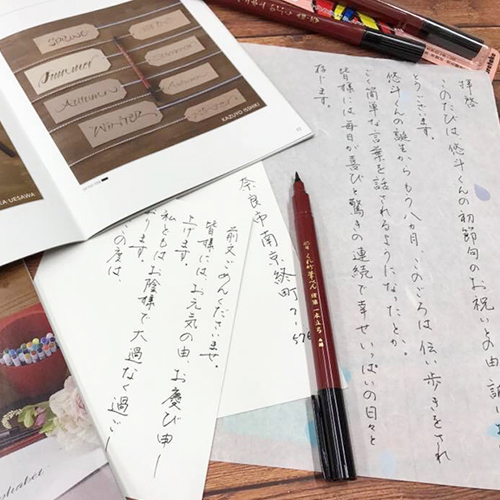 Spring
Summer
Summer
Autumn
Autumn
WINTER
KAZUYO ISSHIKI
IA UESAWA
拝啓
このたびは悠斗くんの初節句のお祝いとの由、誠に
とうございます。
悠斗くんの誕生からもう八か月、このごろは伝い歩きをされ
ごく簡単な言葉を話されるようになったとか。
皆様には毎日が喜びと驚きの連続で幸せいっぱいの日々と
存じます。
奈良市南京終町7-576
前文ごめんくださいませ。
皆様には、お元気の由、お慶び申し
上げます。
私どもはお陰様で大過なく過ごし
ります。
この度は、
くれ竹筆ぺん